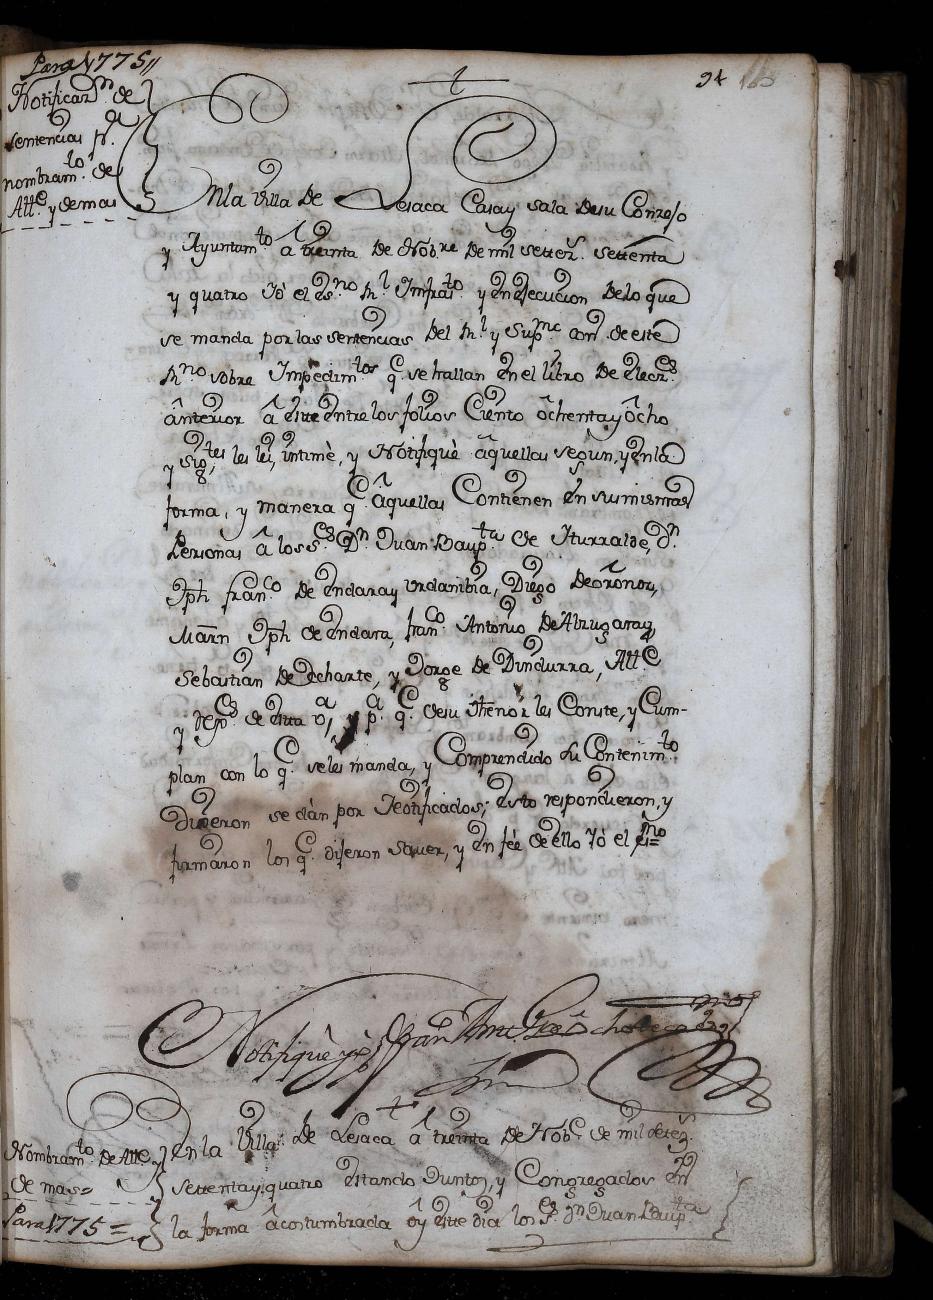 Para 1775//
Notificaz.n de
sentencias p.a
nombram.to de
Alt.e y demas
94
En la Villa De Lesaca Casa y sala Desu Conzejo
y Ayuntam.to â treinta De Nob.re De mil settez.s settenta
y quatro Yò el es.no R.l Infras.to y en ejecucion Delo que
se manda por las sentencias Del R.l y Sup.mo con.o de este
R.no sobre Impedim.tos q.e se hallan en el libro De elecz.es
ânterior â este entre los folios Ciento ôchenta y ôcho
y sig.tes les leì, intimè, y Notifiquè âquellas segun, y en la
forma, y manera q.e âquellas Contienen en sus mismas
Personas â los S.es D.n Juan Baup.ta de Iturralde, D.n
Jph fran.co De endara y Vrdanibia, Diego De ôronoz,
Marn Jph de endara, fran.co Antonio De Alzugaray,
Sebastian De echarte, y Jorge De Dindurra, Alt.e
y Rejo.es de esta v.a, y p.a q.e desu Thenòr les Conste, y Cum-
plan con lo q.e seles manda, y Comprendido su Contenim.to
Dijeron se dàn por Notificados; esto respondieron, y
firmaron los q.e dijeron sauer, y en feè de ello Yò el es.no=
Notifiquè yo Juan Ant.o
Nombram.to De Alt.e
de mas=
Para 1775=
en la Villa De Lesaca â treinta De Nob.e de mil setez.s
settenta y quatro estando Juntos, y Congregados en
la forma âcostumbrada oy este dia los S.es D.n Juan Baup.ta